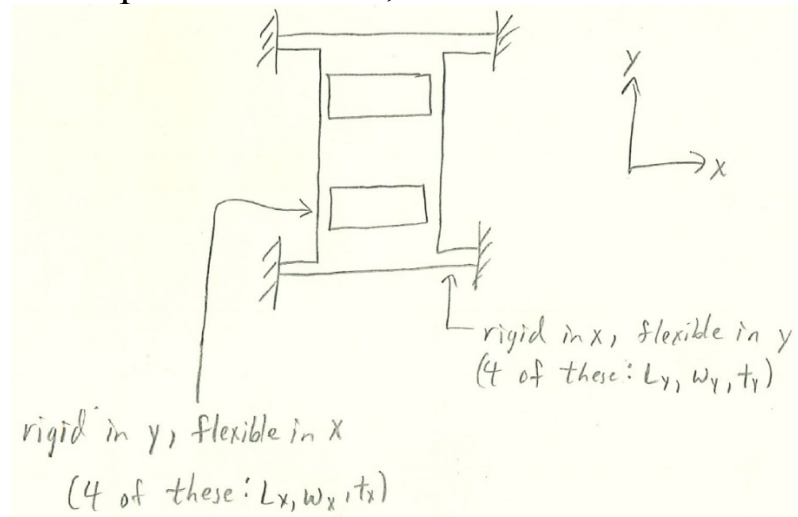 y
x
rigid in x, flexible in y
(4 of these: Ly, wy, ty)
rigid in y, flexible in x
(4 of these: Lx, wx, tx)